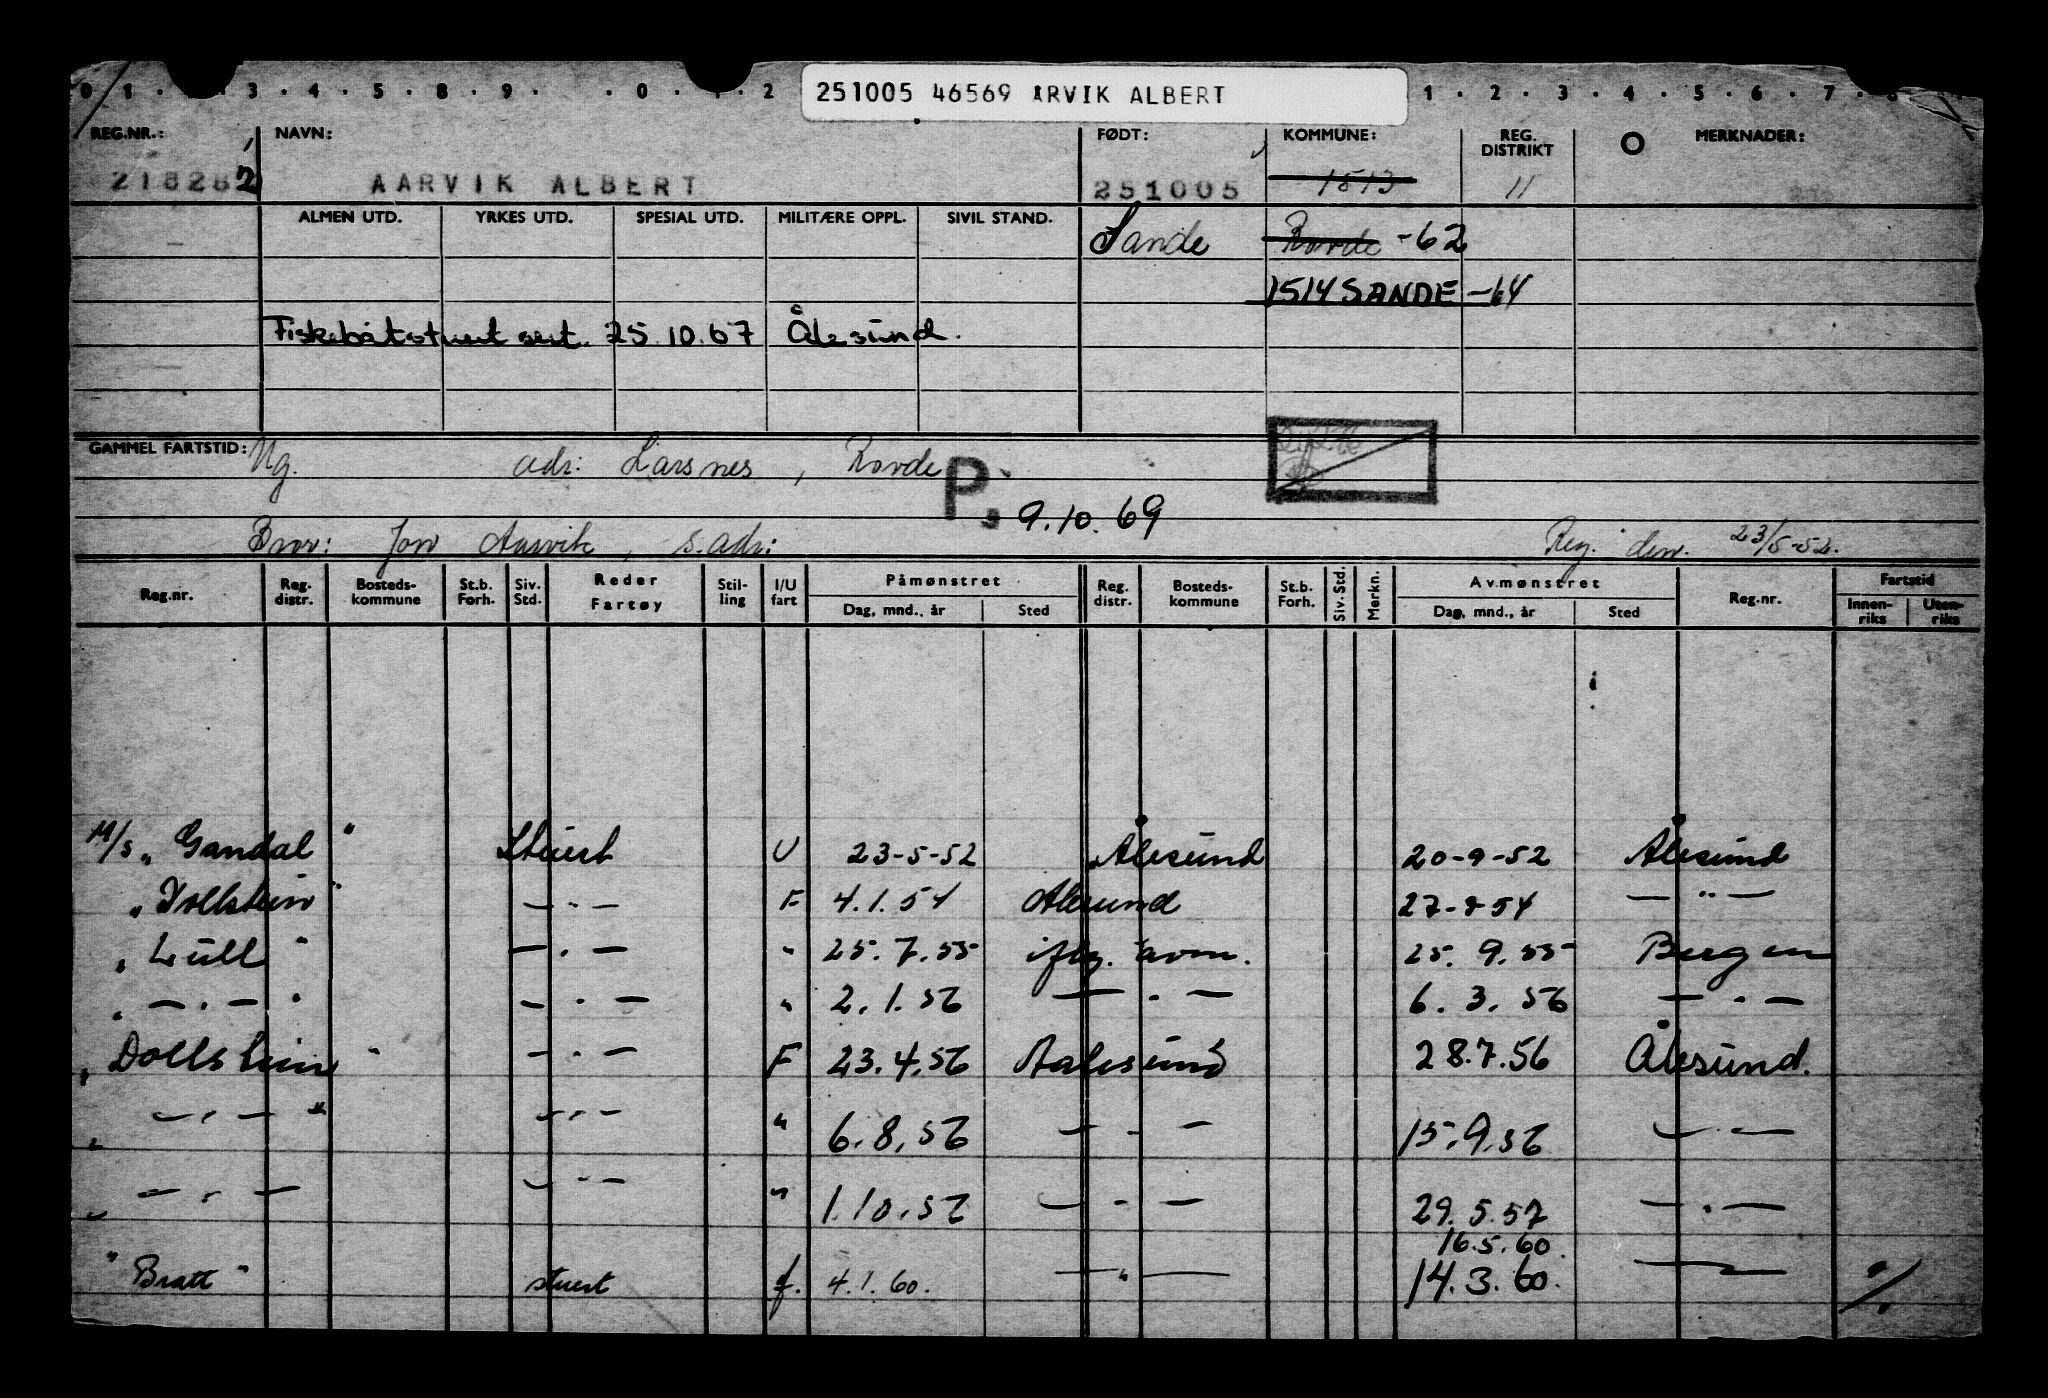 251005 46569 ARVIK ALBERT
0 1 . . 3 . 4 . 5 . 8 . 9 . . 0 . 1 . 2 1 . 2 . 3 . 4 . 5 . 6 . 7 . 8
REG.NR.: NAVN: FØDT: KOMMUNE: REG. DISTRIKT MERKNADER:
218282 AARVIK ALBERT 251005 1513 11
ALMEN UTD. YRKES UTD. SPESIAL UTD. MILITÆRE OPPL. SIVIL STAND. Sande Rovde -62
1514 SANDE -64
Fiskebåtstuert sert. 25.10.67 Ålesund.
GAMMEL FARTSTID: Ug. adr: Larsnes, Rovde
P. 9.10.69
Bror: Jon Aarvik, s. adr: Reg. den. 23/5-52.
Reg.nr. Reg. distr. Bosteds-kommune St.b. Forh. Siv. Std. Reder Fartøy Stil-ling I/U fart Påmønstret Reg. distr. Bosteds-kommune St.b. Forh. Siv. Std. Merkn. Avmønstret Reg.nr. Fartstid
Dag, mnd., år Sted Dag, mnd., år Sted Innen-riks Uten-riks
M/s "Gandal" Stuert U 23-5-52 Ålesund 20-9-52 Ålesund
"Dollstein" — " — F 4.1.54 Alesund 27-8-54 — " —
" Lull " — " — " 25.7.55 iflg. avm. 25.9.55 Bergen
" — " — " — " — " 2.1.56 — " — 6.3.56 — " —
" Dollstein " — " — F 23.4.56 Aalesund 28.7.56 Ålesund.
" — " — " — " — " 6.8.56 — " — 15.9.56 — " —
" — " — — " — " 1.10.56 — " — 29.5.57 — " —
16.5.60.
" Bratt " stuert f. 4.1.60. — " — 14.3.60. — " — %